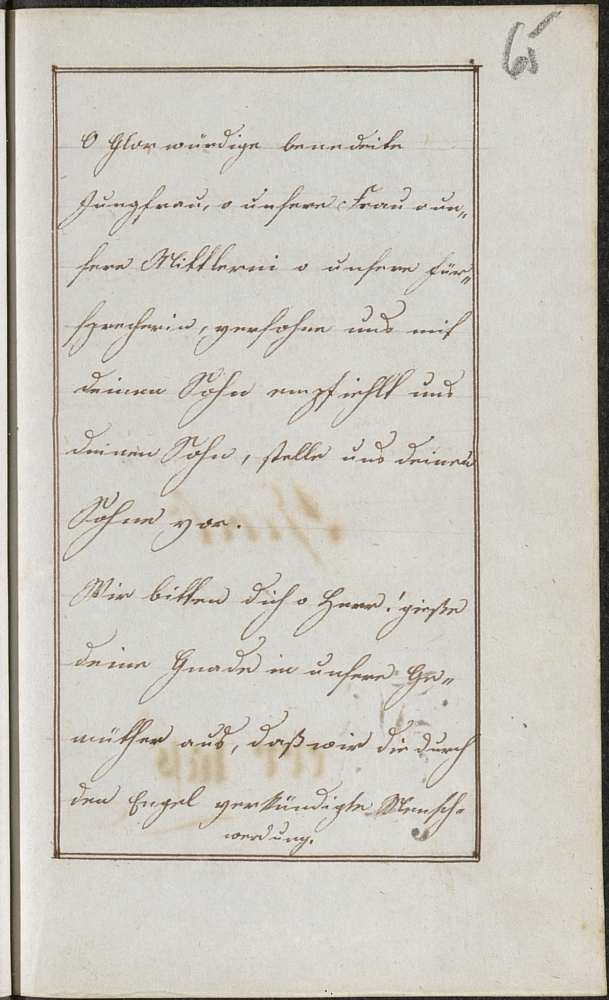 65
O Glorwürdige benedeite
Jungfrau, o unsere Frau o un„
sere Mittlerni o unsere für„
sprecherin, versohne uns mit
deinen Sohn empfiehlt uns
deinen Sohn, stelle uns deinen
Sohne vor.
Wir bitten dich o Herr! gieße
deine Gnade in unsere Ge„
müther aus, daß wir die durch
den Engel verkündigte Mensch„
werdung.